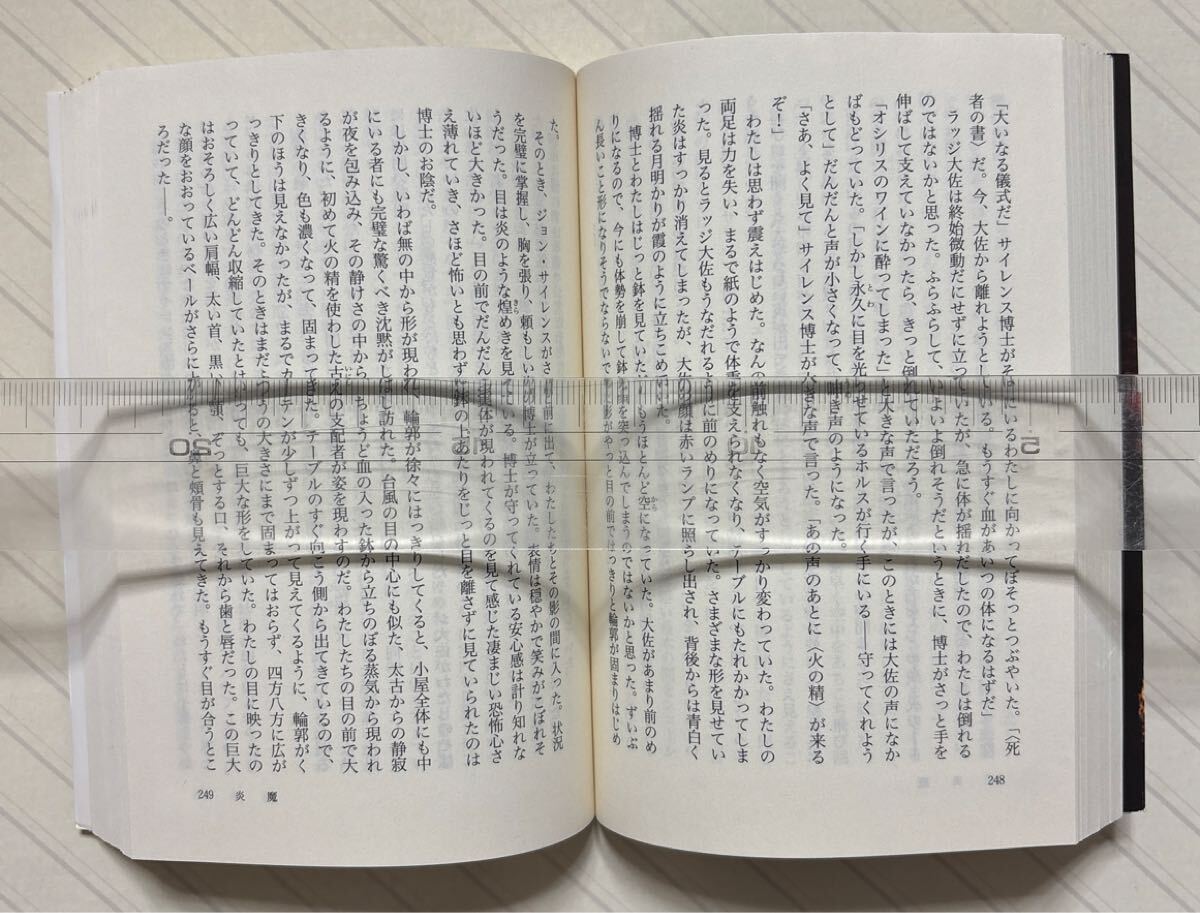 「大いなる儀式だ」サイレンス博士がそばにいるわたしに向かってぼそっとつぶやいた。「〈死
者の書〉だ。今、大佐から離れようとしている。もうすぐ血があいつの体になるはずだ」
ラッジ大佐は終始微動だにせずに立っていたが、急に体が揺れだしたので、わたしは倒れる
のではないかと思った。ふらふらして、いよいよ倒れそうだというときに、博士がさっと手を
伸ばして支えていなかったら、きっと倒れていただろう。
「オシリスのワインに酔ってしまった」と大きな声で言ったが、このときには大佐の声になか
ばもどっていた。「しかし永久に目を光らせているホルスが行く手にいる――守ってくれよう
として」だんだんと声が小さくなって、呟き声のようになった。
「さあ、よく見て」サイレンス博士が大きな声で言った。「あの声のあとに〈火の精〉が来る
ぞ!」
わたしは思わず震えはじめた。なんの前触れもなく空気がすっかり変わっていた。わたしの
両足は力を失い、まるで紙のようで体重を支えられなくなり、テーブルにもたれかかってしま
った。見るとラッジ大佐もうなだれるように前のめりになっていた。さまざまな形を見せてい
た炎はすっかり消えてしまったが、大佐の顔は赤いランプに照らし出され、背後からは青白く
揺れる月明かりが霞のように立ちこめていた。
博士とわたしはじっと鉢を見ていたが、もうほとんど空になっていた。大佐があまり前のめ
りになるので、今にも体勢を崩して鉢に顔を突っ込んでしまうのではないかと思った。ずいぶ
ん長いこと形になりそうでならないでいた影がやっと目の前ではっきりと輪郭が固まりはじめ
248
た。
そのとき、ジョン・サイレンスがさっと前に出て、わたしたちとその影の間に入った。状況
を完璧に掌握し、胸を張り、頼もしいあの博士が立っていた。表情は穏やかで笑みがこぼれそ
うだった。目は炎のような煌めきを見せている。博士が守ってくれている安心感は計り知れな
いほど大きかった。目の前でだんだんと実体が現われてくるのを見て感じた凄まじい恐怖心さ
え薄れていき、さほど怖いとも思わずに鉢の上あたりをじっと目を離さずに見ていられたのは
博士のお陰だ。
しかし、いわば無の中から形が現われ、輪郭が徐々にはっきりしてくると、小屋全体にも中
にいる者にも完璧な驚くべき沈黙がしばし訪れた。台風の目の中心にも似た、太古からの静寂
が夜を包み込み、その静けさの中から、ちょうど血の入った鉢から立ちのぼる蒸気から現われ
るように、初めて火の精を使わした古えの支配者が姿を現わすのだ。わたしたちの目の前で大
きくなり、色も濃くなって、固まってきた。テーブルのすぐ向こう側から出てきているので、
下のほうは見えなかったが、まるでカーテンが少しずつ上がって見えてくるように、輪郭がく
っきりとしてきた。そのときはまだふつうの大きさにまで固まってはおらず、四方八方に広が
っていて、どんどん収縮していたとはいっても、巨大な形をしていた。わたしの目に映ったの
はおそろしく広い肩幅、太い首、黒い顎、ぞっとする口、それから歯と唇だった。この巨大
な顔をおおっているベールがさらに上がると、鼻と頬骨も見えてきた。もうすぐ目が合うとこ
ろだった――。
249 炎魔